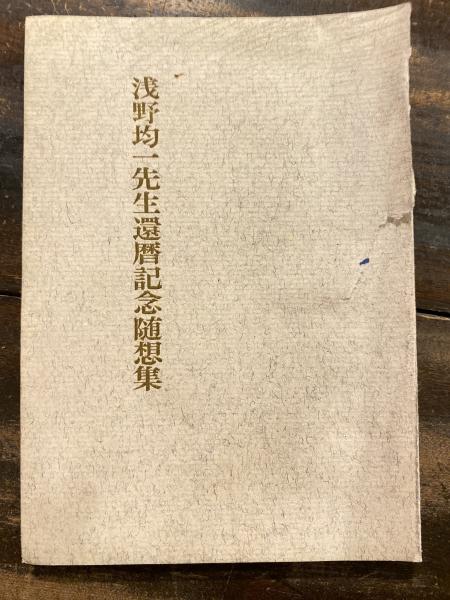 浅野均一先生還暦記念随想集